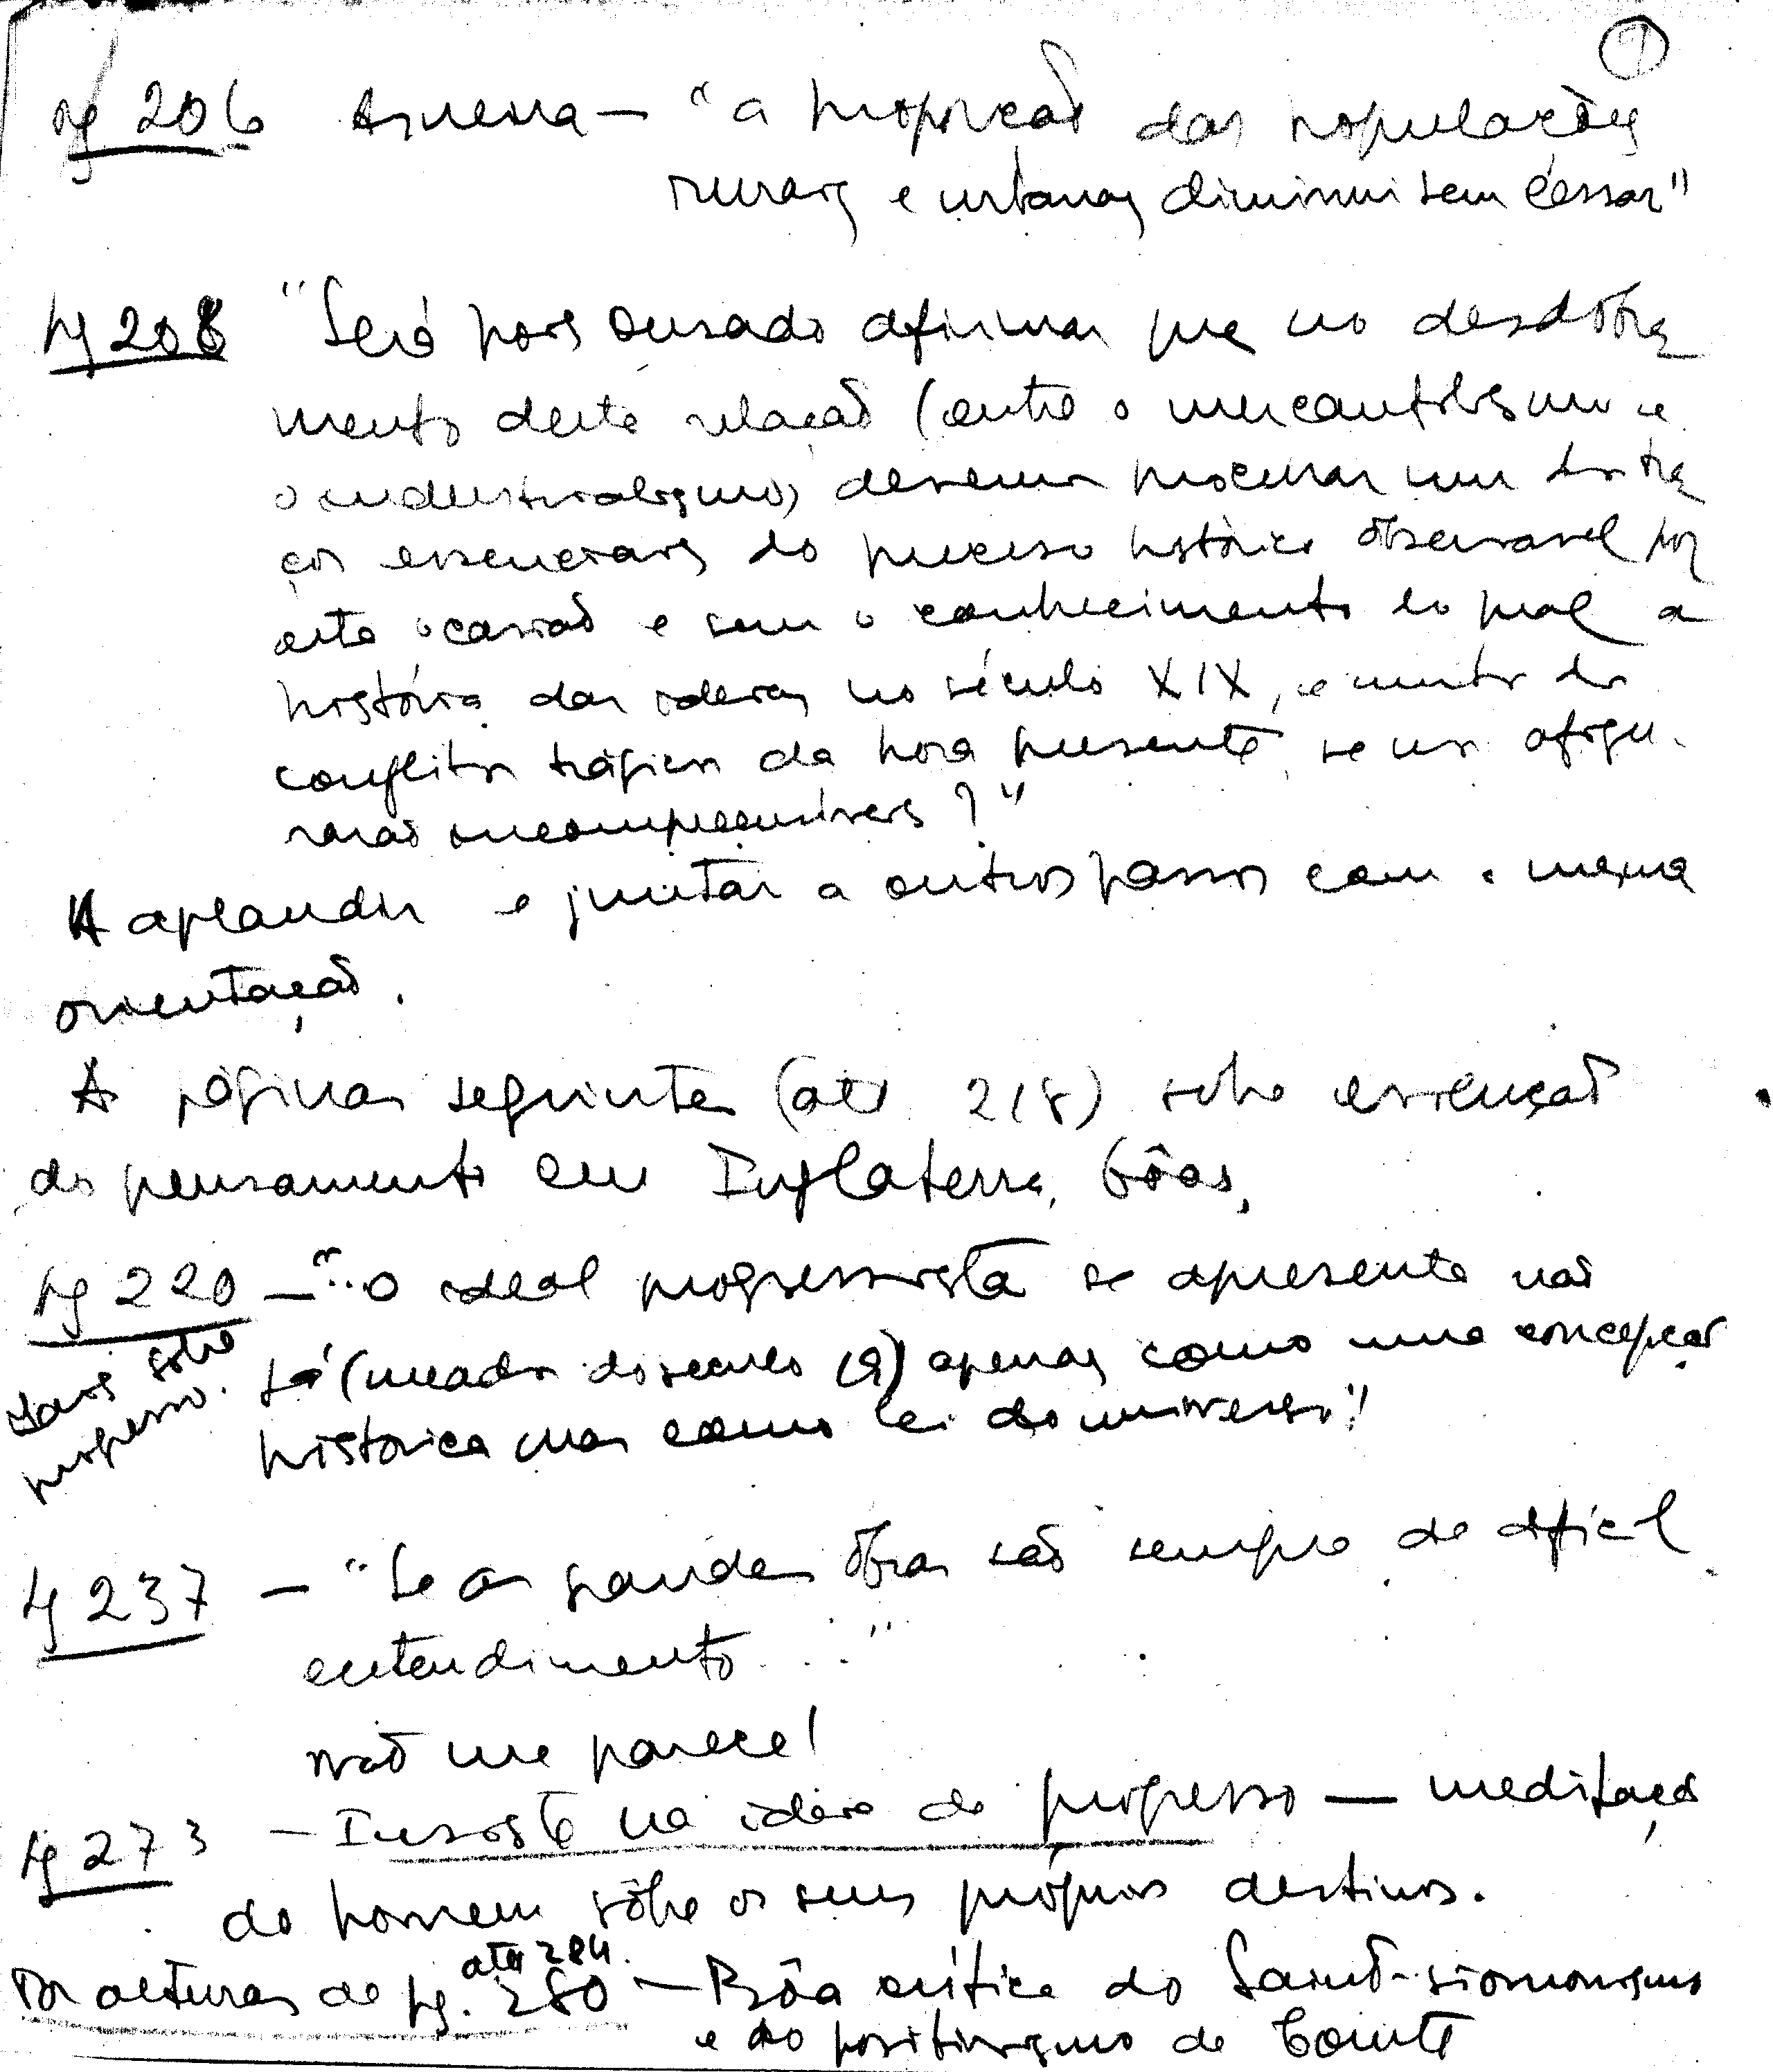 1
pg 206 Asneira — "a proporção das populações
rurais e urbanas diminui sem cessar"
pg 208 "Será pois ousado afirmar que no desdobra
mento desta relação (entre o mercantilismo e
o industrialismo) devemos procurar um dos tra
ços essenciais do processo histórico observavel por
esta ocasião e sem o conhecimento do qual a
história das ideias no século XIX, e muitos dos
conflitos trágicos da hora presente, se nos afigu-
rarão incompreensíveis?"
A aplaudir e juntar a outros passos com a mesma
orientação.
As páginas seguintes (até 218) sobre
do pensamento em Inglaterra, bôas,
pg 220 — "... o ideal progressista se apresenta não
só (meados do seculo 19) apenas como uma concepção
historica mas como lei do universo."
sobre
progresso.
pg 237 — "Se as grandes obras são sempre de dificil
entendimento ..."
não me parece!
pg 273 — Insiste na ideia de progresso — meditação
do homem sôbre os seus próprios destinos.
até 284.
Por alturas de pg. 280 — Bôa critica do Saint-simonismo
e do positivismo de Comte